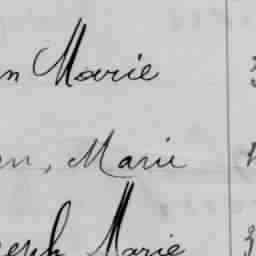 n Marie
n, Marie
seph Marie